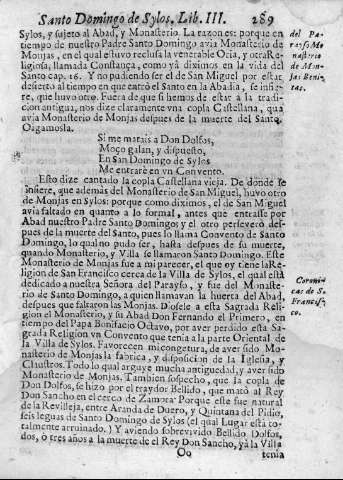 Santo Domingo de Sylos. Lib. III. 289
Sylos, y sujeto al Abad, y Monasterio. La razon es: porque en
tiempo de nuestro Padre Santo Domingo avia Monasterio de
Monjas, en el qual estuvo reclusa la venerable Oria, y otra Re-
ligiosa, llamada Constança, como yà diximos en la vida del
Santo cap. 16. Y no pudiendo ser el de San Miguel por estar
desierto al tiempo en que entrò el Santo en la Abadia, se infie-
re, que huvo otro. Fuera de que si hemos de estar à la tradi-
cion antigua, nos dize claramente vna copla Castellana, que
avia Monasterio de Monjas despues de la muerte del Santo,
Si me matais a Don Dolfos,
Moço galan, y dispuesto,
En San Domingo de Sylos
Me entraré en vn Convento.
Esto dize cantado la copla Castellana vieja. De donde se
infiere, que además del Monasterio de San Miguel, huvo otro
de Monjas en Sylos: porque como diximos, el de San Miguel
avia faltado en quanto a lo formal, antes que entrasse por
Abad nuestro Padre Santo Domingo; y el otro perseverò des-
pues de la muerte del Santo, pues lo llama Convento de Santo
Domingo, lo qual no pudo ser, hasta despues de su muerte,
quando Monasterio, y Villa se llamaron Santo Domingo. Este
Monasterio de Monjas fue a mi parecer, el que oy tiene la Re-
ligion de San Francisco cerca de la Villa de Sylos, el qual està
dedicado a nuestra Señora del Parayso, y fue del Monaste-
rio de Santo Domingo, a quien llamavan la huerta del Abad,
despues que faltaron las Monjas. Diosele a esta Sagrada Reli-
gion el Monasterio, y su Abad Don Fernando el Primero, en
tiempo del Papa Bonifacio Octavo, por aver perdido esta Sa-
grada Religion vn Convento que tenia a la parte Oriental de
la Villa de Sylos. Favorecen mi congetura, de aver sido Mo-
nasterio de Monjas la fabrica, y disposicion de la Iglesia, y
Claustros. Todo lo qual arguye mucha antiguedad, y aver sido
Monasterio de Monjas. Tambien sospecho, que la copla de
Don Dolfos, se hizo por el traydor Bellido, que matò al Rey
Don Sancho en el cerco de Zamora: Porque este fue natural
de la Revilleja, entre Aranda de Duero, y Quintana del Pidio,
seis leguas de Santo Domingo de Sylos (el qual Lugar està to-
talmente arruinado.) Y aviendo sobrevivido Bellido Dolfos,
dos, ò tres años a la muerte de el Rey Don Sancho, yà la Villa
Oo tenia
del Pa-
rayso Mo
nasterio
de Mon-
jas Beni-
tas.
Coroni-
cas de S.
Francis-
co.